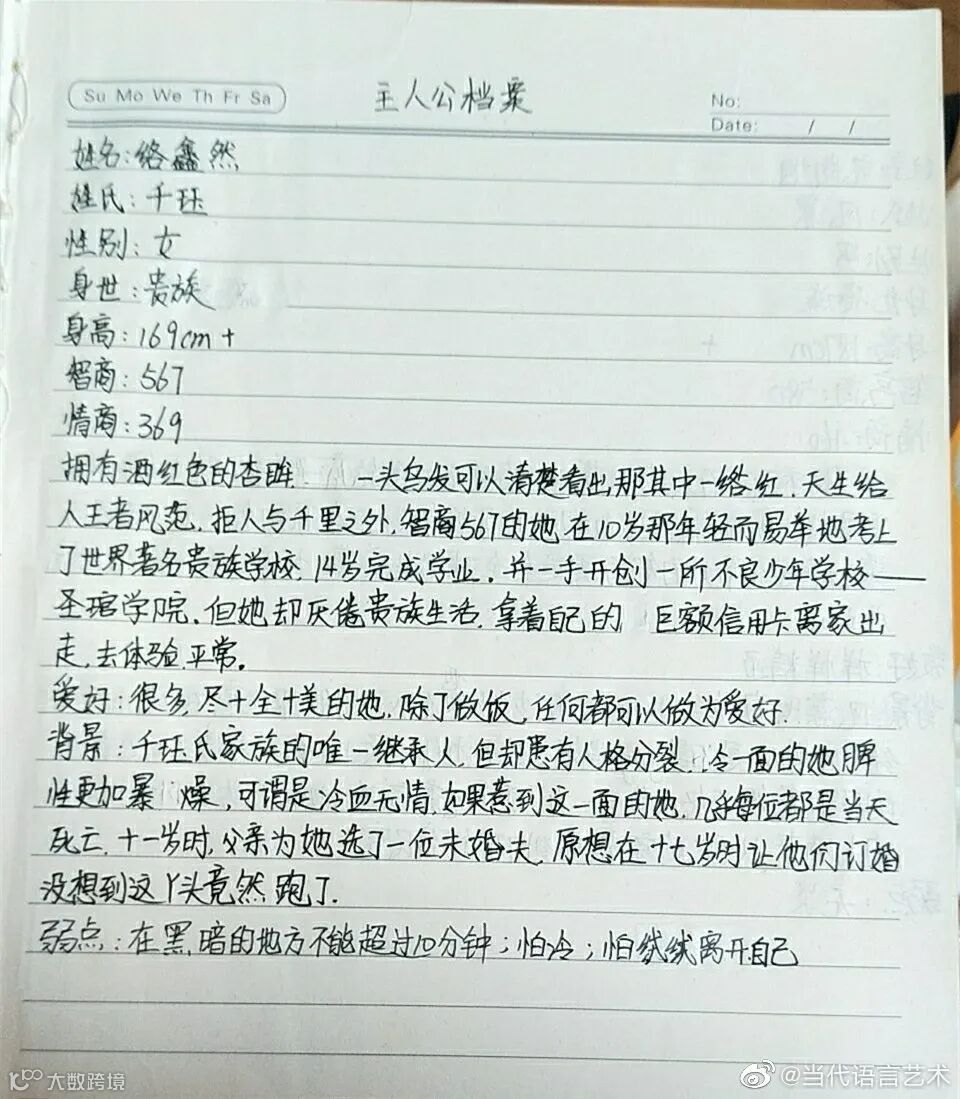 Su Mo We Th Fr Sa
主人公档案
No:
Date: / /
姓名:络鑫然
姓氏:千珏
性别:女
身世:贵族
身高:169cm+
智商:567
情商:369
拥有酒红色的杏眸. 一头乌发可以清楚看出那其中一绺红.天生给
人王者风范.拒人与千里之外.智商567的她在10岁那年轻而易举地考上
了世界著名贵族学校.14岁完成学业.并一手开创一所不良少年学校——
圣琯学院.但她却厌倦贵族生活.拿着自己的 巨额信用卡离家出
走.去体验平常.
爱好:很多,尽十全十美的她.除了做饭,任何都可以做为爱好.
背景:千珏氏家族的唯一继承人,但却患有人格分裂.冷一面的她脾
性更加暴 燥,可谓是冷血无情.如果惹到这一面的她.几乎每位都是当天
死亡.十一岁时,父亲为她选了一位未婚夫.原想在十七岁时让他们订婚
没想到这丫头竟然跑了.
弱点:在黑暗的地方不能超过10分钟;怕冷;怕绒绒离开自己
大数跨境
@当代语言艺术